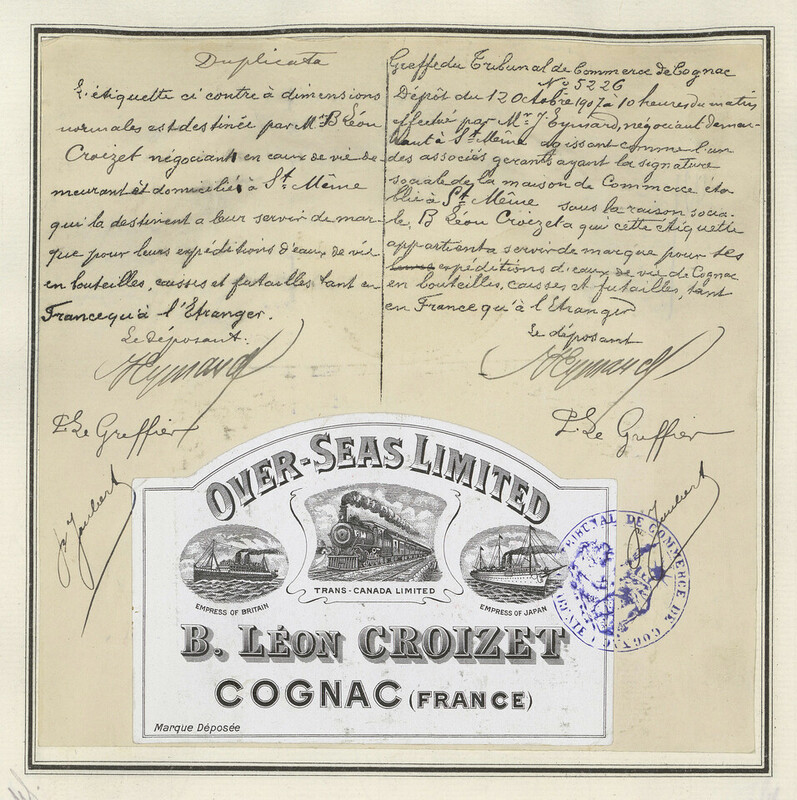 Duplicata
L'étiquette ci contre à dimensions
normales est destinée par Mr B Léon
Croizet négociant en eaux de vie de-
meurant et domicilié à St. Même
qui la destinent a leur servir de mar-
que pour leurs expéditions d'eaux de vie
en bouteilles, caisses et futailles tant en
France qu'à l'Etranger.
Le déposant.
J Eymard
P. Le Greffier
Joubert
Greffe du Tribunal de Commerce de Cognac
No 5226
Dépôt du 12 Octobre 1907 a 10 heures du matin
effectué par Mr J. Eymard, négociant demeu-
rant à St Même agissant comme l'un
des associés gerants ayant la signature
sociale de la maison de Commerce éta-
blie à St Même sous la raison socia-
le, B Léon Croizet a qui cette étiquette
appartient a servir de marque pour ses
leurs expéditions d'eaux de vie de Cognac
en bouteilles, caisses et futailles, tant
en France qu'à l'Etranger
Le déposant
J Eymard
P. Le Greffier
Joubert
OVER-SEAS LIMITED
TRANS-CANADA LIMITED
EMPRESS OF BRITAIN
EMPRESS OF JAPAN
B. LÉON CROIZET
COGNAC (FRANCE)
Marque Déposée
TRIBUNAL DE COMMERCE DE COGNAC